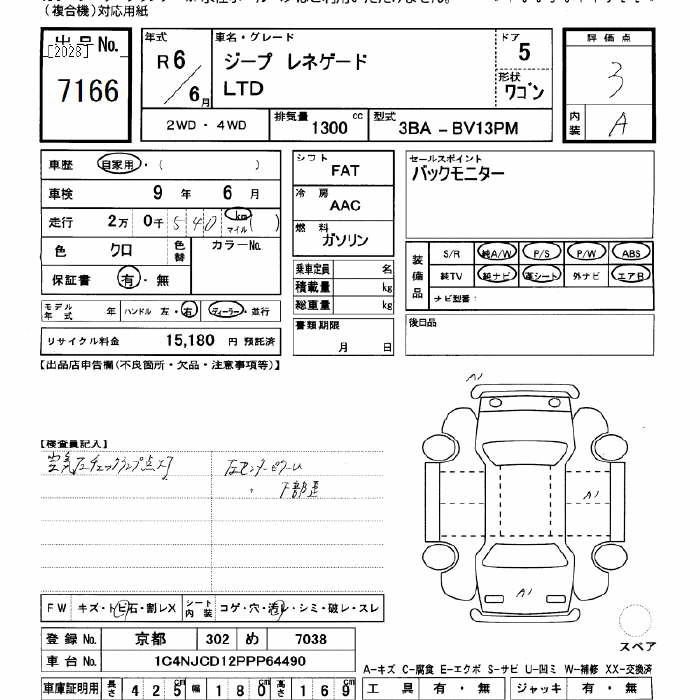 (複合機)対応用紙
出品No.
[2028]
7166
年式
R6/6月
車名・グレード
ジープ レネゲード
LTD
ドア
5
形状
ワゴン
評価点
3
内装
A
2WD・4WD
排気量 1300 cc
型式 3BA - BV13PM
車歴 自家用・( )
車検 9年 6月
走行 2万 0千 540 km マイル ( )
色 クロ 色替 カラーNo.
保証書 有・無
モデル年式 年 ハンドル 左・右 ディーラー・並行
リサイクル料金 15,180 円 預託済
シフト
FAT
冷房
AAC
燃料
ガソリン
乗車定員 名
積載量 kg
総重量 kg
書類期限
月 日
セールスポイント
バックモニター
装備品
S/R 純A/W P/S P/W ABS
純TV 純ナビ 革シート 外ナビ エアB
ナビ型番:
後日品
【出品店申告欄(不良箇所・欠品・注意事項等)】
【検査員記入】
空気圧チェックランプ点灯
左センターピラー
下部歪
A1
A1
A1
FW キズ・トビ石・割レX シート内装 コゲ・穴・汚レ・シミ・破レ・スレ
スペア
登録No. 京都 302 め 7038
車台No. 1C4NJCD12PPP64490
A-キズ C-腐食 E-エクボ S-サビ U-凹ミ W-補修 XX-交換済
車庫証明用 長さ 425cm 幅 180cm 高さ 169cm
工具 有・無 ジャッキ 有・無